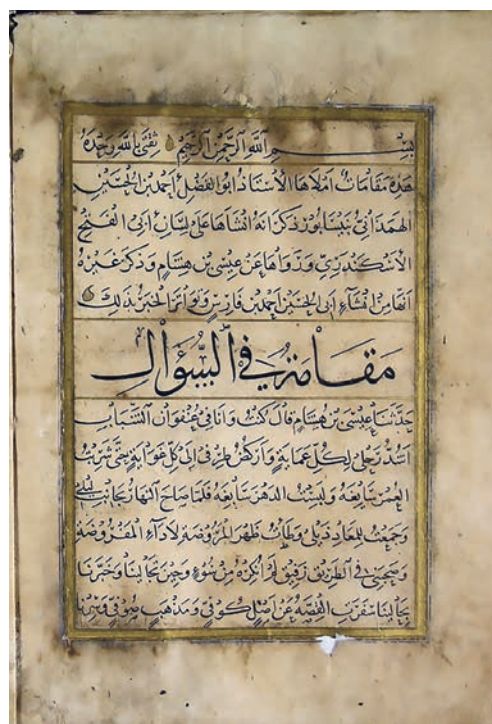 بِسْمِ اللَّهِ الرَّحْمَنِ الرَّحِيمِ ثِقَتِي بِاللَّهِ وَحْدَهُ
هَذِهِ مَقَامَاتٌ أَمْلَاهَا الْأُسْتَاذُ أَبُو الْفَضْلِ أَحْمَدُ بْنُ الْحُسَيْنِ
الْهَمَذَانِيُّ بِنَيْسَابُورَ وَذَكَرَ أَنَّهُ أَنْشَأَهَا عَلَى لِسَانِ أَبِي الْفَتْحِ
الْأَسْكَنْدَرِيِّ وَرَوَاهَا عَنْ عِيسَى بْنِ هِشَامٍ وَذَكَرَ غَيْرُهُ
أَنَّهَا مِنْ إِنْشَاءِ أَبِي الْحُسَيْنِ أَحْمَدَ بْنِ فَارِسٍ وَتَوَاتَرَ الْخَبَرُ بِذَلِكَ
مَقَامَةٌ فِي السُّؤَالِ
حَدَّثَنَا عِيسَى بْنُ هِشَامٍ قَالَ كُنْتُ وَأَنَا فِي عُنْفُوَانِ الشَّبَابِ
أَشُدُّ رَحْلِي لِكُلِّ عَمَايَةٍ وَأَرْكُضُ طِرْفِي إِلَى كُلِّ غَوَايَةٍ حَتَّى شَرِبْتُ
الْعُمْرَ سَائِغَهُ وَلَبِسْتُ الدَّهْرَ سَابِغَهُ فَلَمَّا صَاحَ النَّهَارُ بِجَانِبِ لَيْلِي
وَجَمَعْتُ لِلْمَعَادِ ذَيْلِي وَطِئْتُ ظَهْرَ الْمَرُوضَةِ لِأَدَاءِ الْمَفْرُوضَةِ
وَصَحِبَنِي فِي الطَّرِيقِ رَفِيقٌ لَمْ أُنْكِرْهُ مِنْ سُوءٍ وَحِينَ تَجَالَيْنَا وَخَبَّرَنَا
بِحَالَيْنَا سَفَرَتِ الْقِصَّةُ عَنْ أَصْلٍ كُوفِيٍّ وَمَذْهَبٍ صُوفِيٍّ وَسِرْنَا